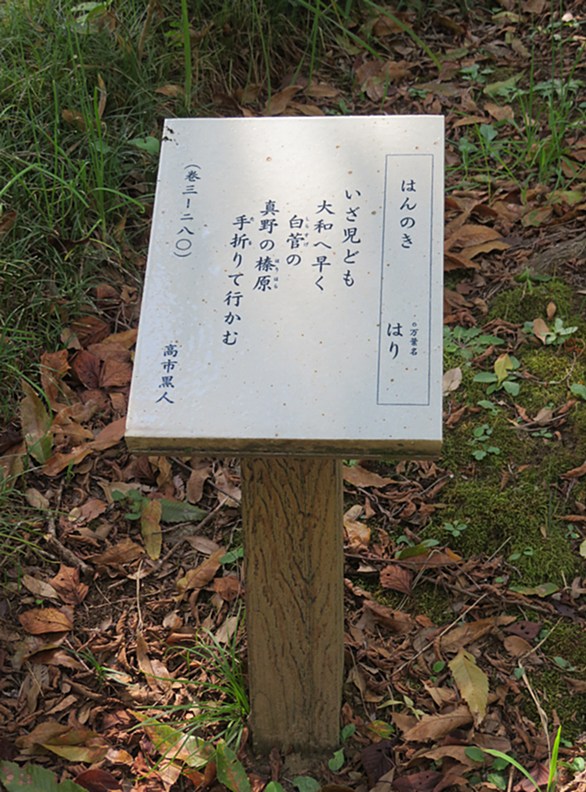 はんのき
○万葉名
はり
いざ児ども
大和へ早く
白菅の
真野の榛原
手折りて行かむ
(巻三ー二八〇)
高市黒人